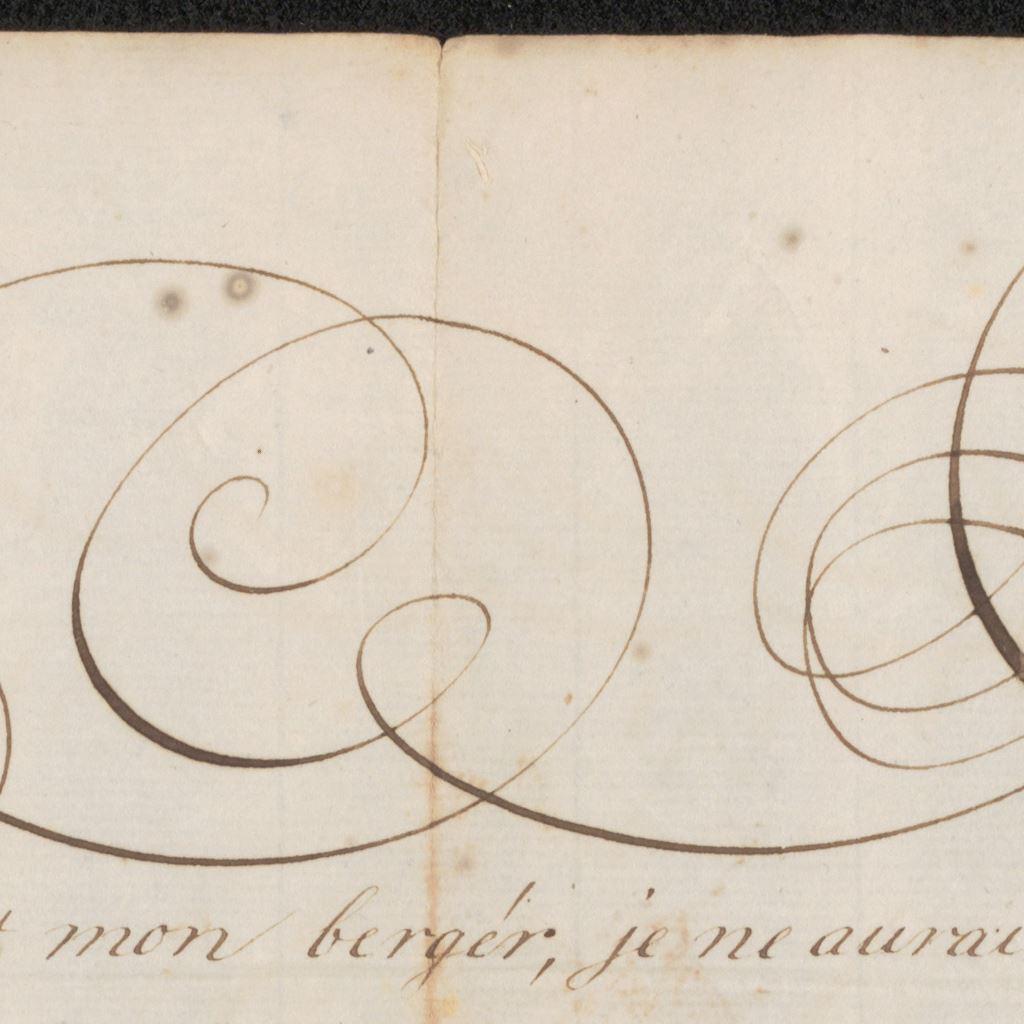 mon bergér, je ne aurai